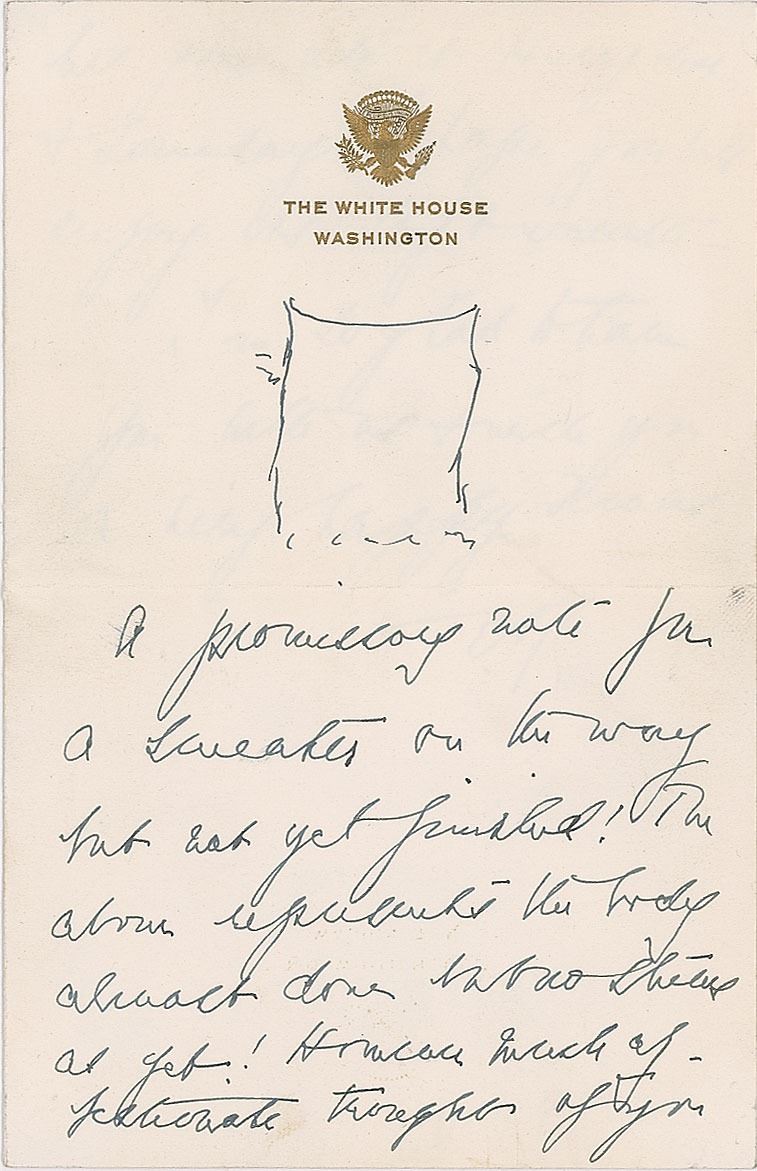 THE WHITE HOUSE
WASHINGTON
A promissory note for
a sweater on the way
but not yet finished! The
above represents the body
almost done but no sleeves
as yet! However much af-
fectionate thoughts of you